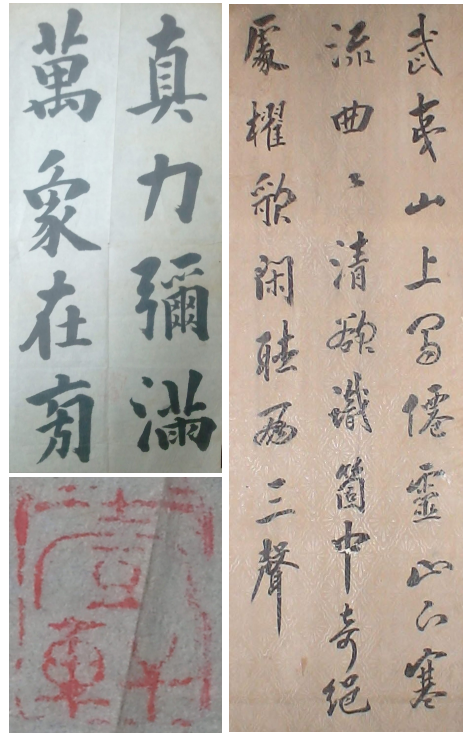 真力彌滿
萬象在旁
武夷山上有僊靈山下寒
流曲〻清欲識箇中奇絕
處櫂歌閑聽兩三聲